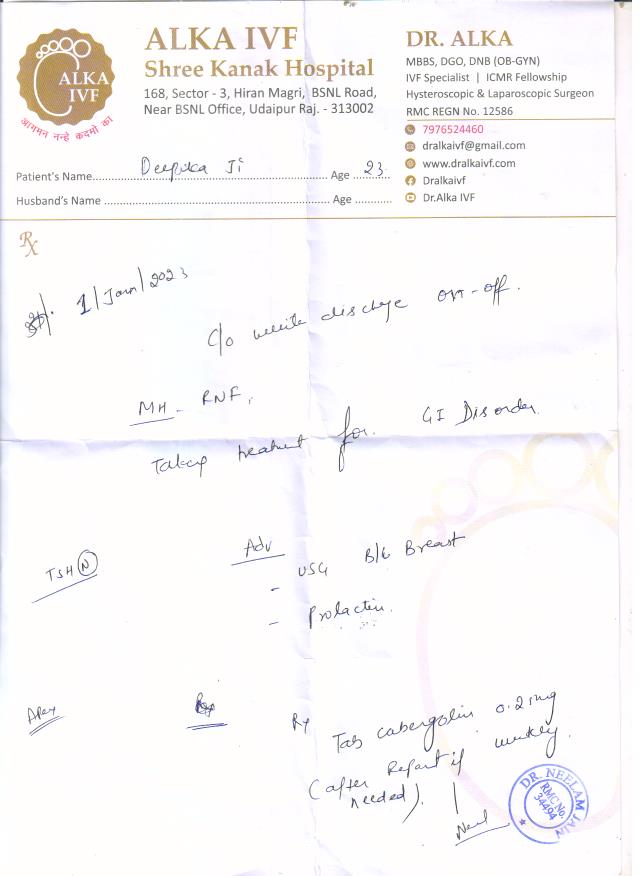 ALKA IVF
Shree Kanak Hospital
168, Sector - 3, Hiran Magri, BSNL Road,
Near BSNL Office, Udaipur Raj. - 313002
ALKA
IVF
आगमन नन्हे कदमों का
DR. ALKA
MBBS, DGO, DNB (OB-GYN)
IVF Specialist | ICMR Fellowship
Hysteroscopic & Laparoscopic Surgeon
RMC REGN No. 12586
7976524460
dralkaivf@gmail.com
www.dralkaivf.com
Dralkaivf
Dr.Alka IVF
Patient's Name Deepika Ji Age 23
Husband's Name Age
Rx
1/Jan/2023
C/o white discharge on-off.
MH - RNF,
Taking treatment for GI Disorder
TSH N
Adv
- USG B/L Breast
- Prolactin
Rx
Rx Tab cabergolin 0.25mg
weekly
(after Report if
needed).
DR. NEELAM JAIN
RMC No.
34494